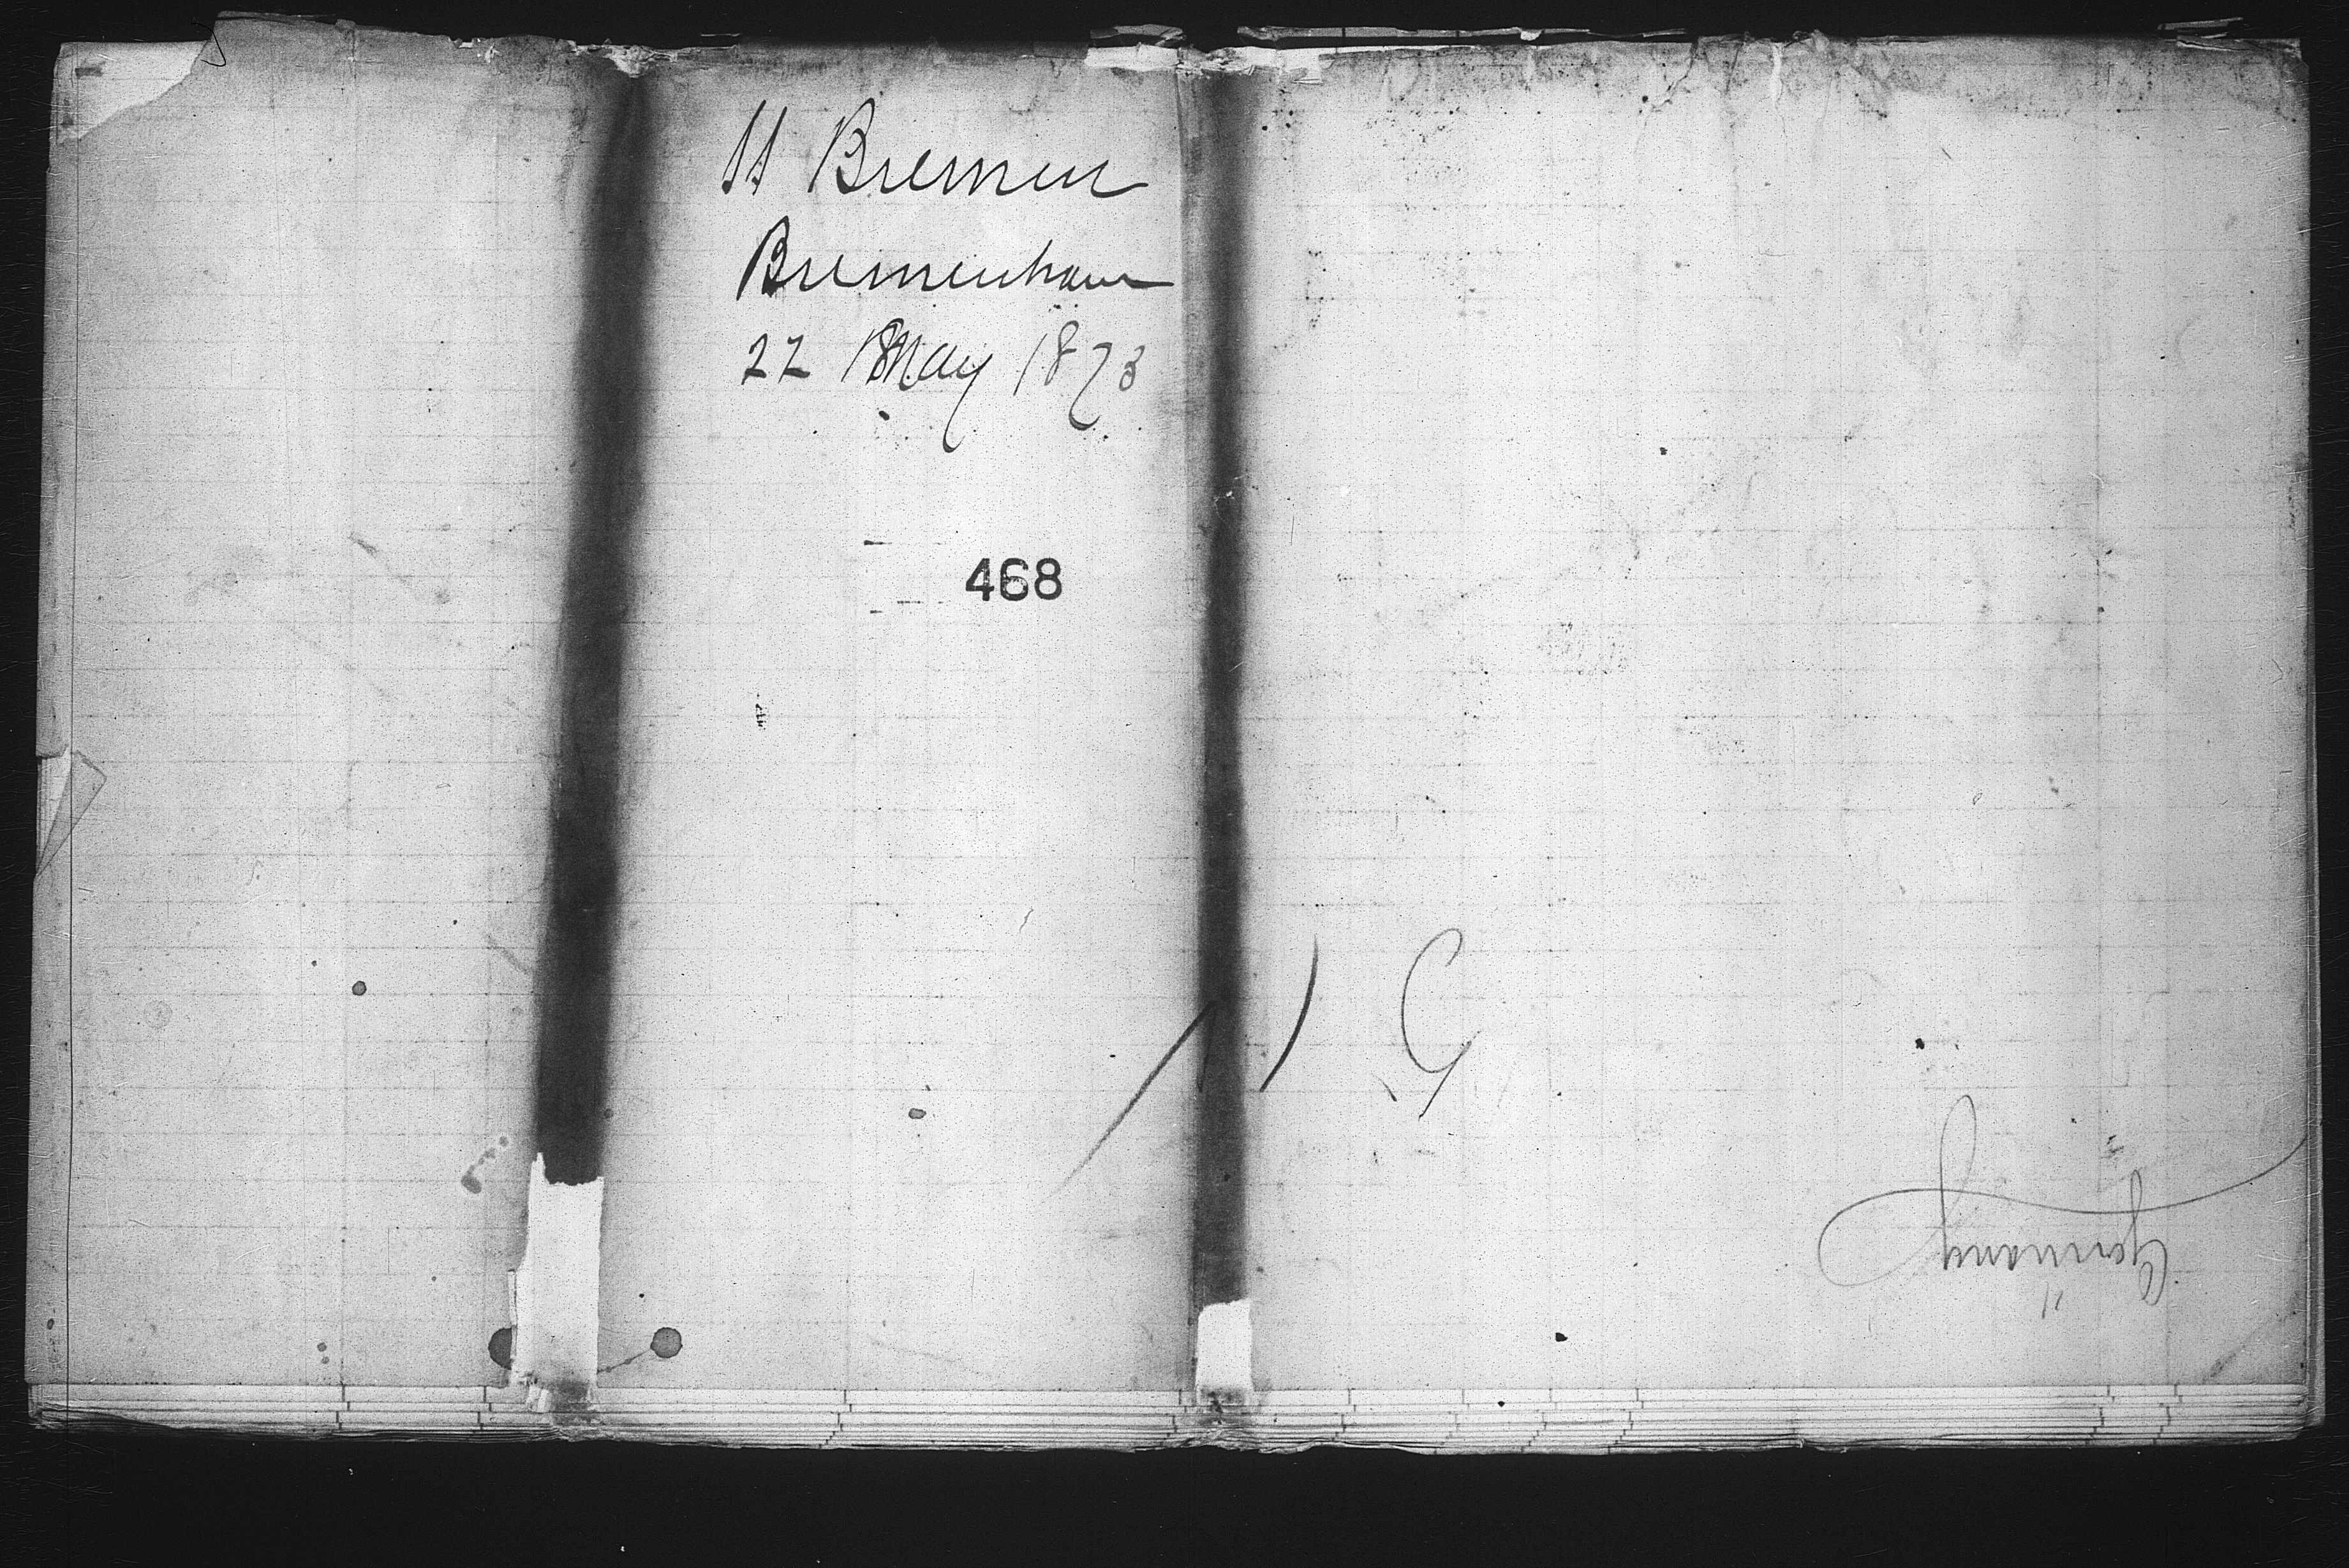 SS Bremen
Bremenhaven
22 May 1873
468
Germany